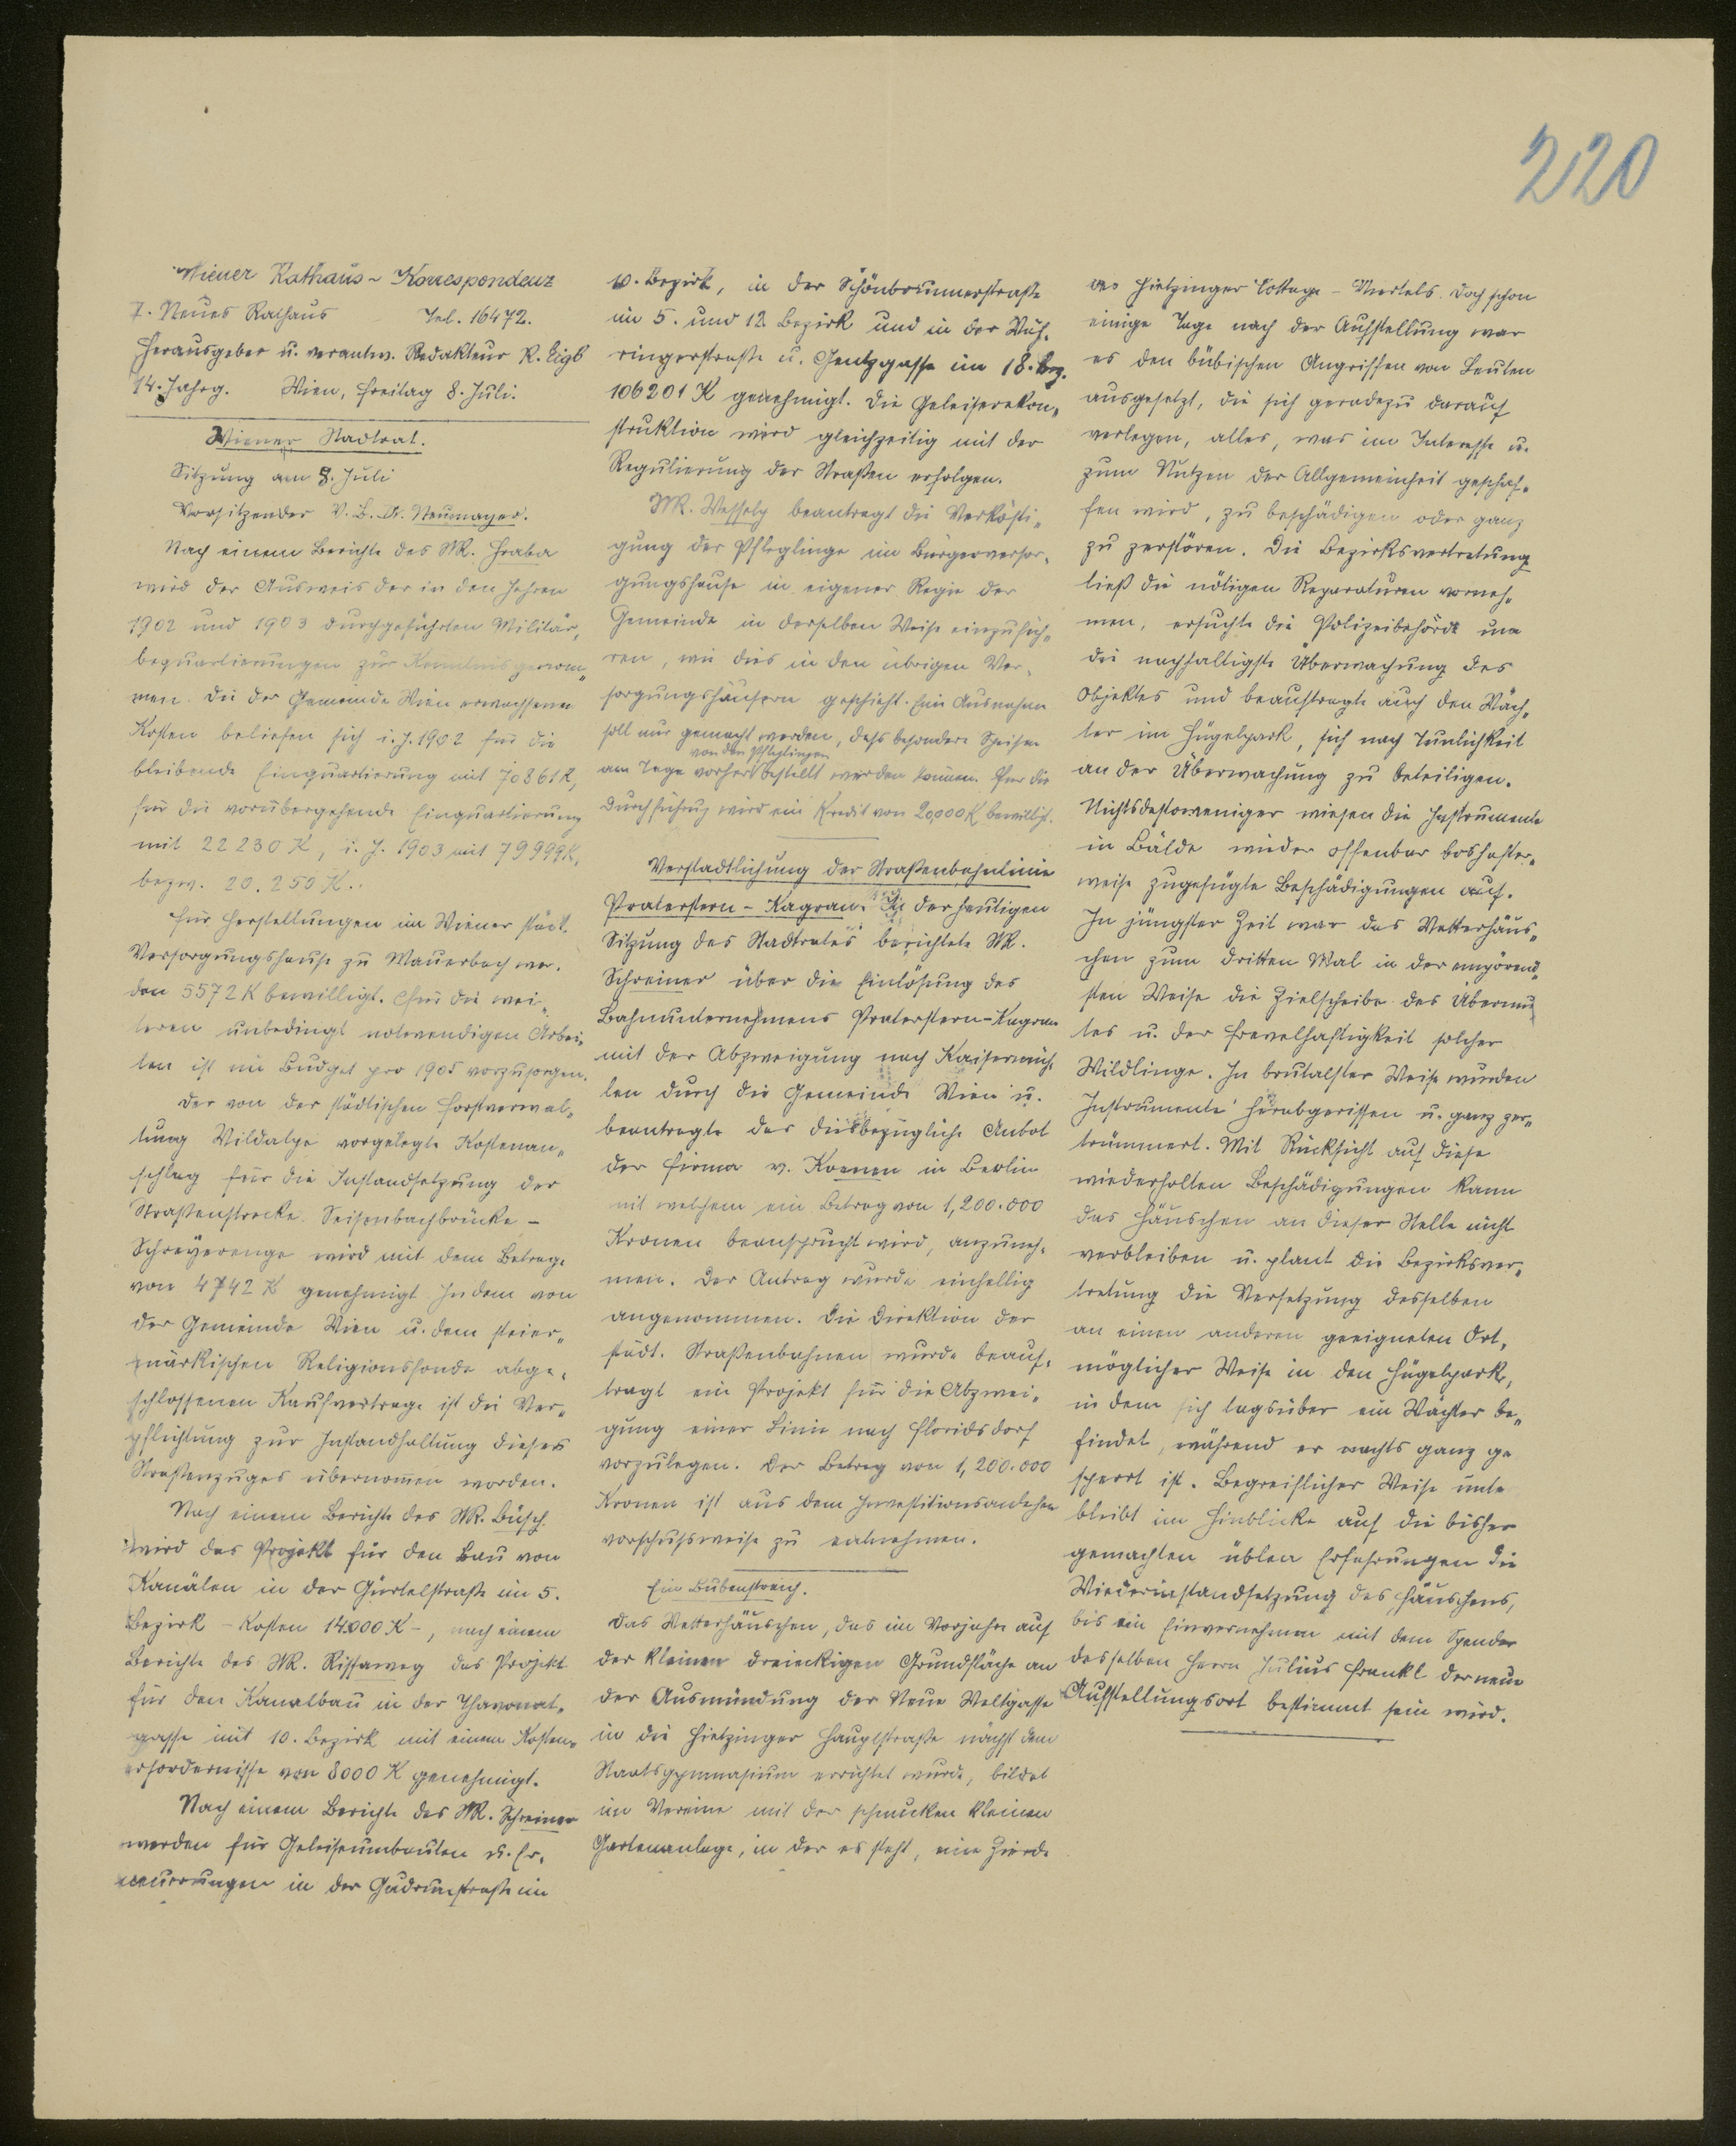 220
Wiener Rathaus-Korrespondenz
7. Neues Rathaus Tel. 16472.
Herausgeber u. verantw. Redakteur R. Eigl
14. Jahrg. Wien, Freitag 8. Juli.
Wiener Stadtrat.
Sitzung am 8. Juli
Vorsitzender V. B. Dr. Neumayer.
Nach einem Berichte des StR. Hraba
wird der Ausweis der in den Jahren
1902 und 1903 durchgeführten Militär-
bequartierungen zur Kenntnis genom-
men. Die der Gemeinde Wien erwachsenen
Kosten beliefen sich i. J. 1902 für die
bleibende Einquartierung mit 70861 K,
für die vorübergehende Einquartierung
mit 22230 K, i. J. 1903 mit 79999 K,
bezw. 20.250 K.
Für Herstellungen im Wiener städt.
Versorgungshause zu Mauerbach wer-
den 5572 K bewilligt. Für die wei-
teren unbedingt notwendigen Arbei-
ten ist im Budget pro 1905 vorzusorgen.
Der von der städtischen Forstverwal-
tung Wildalpe vorgelegte Kostenan-
schlag für die Instandsetzung der
Straßenstrecke Seisenbachbrücke -
Schreyerenge wird mit dem Betrage
von 4742 K genehmigt In dem von
der Gemeinde Wien u. dem steier-
märkischen Religionsfonde abge-
schlossenen Kaufvertrage ist die Ver-
pflichtung zur Instandhaltung dieses
Straßenzuges übernommen worden.
Nach einem Berichte des StR. Büsch
wird das Projekt für den Bau von
Kanälen in der Gürtelstraße im 5.
Bezirk - Kosten 14000 K -, nach einem
Berichte des StR. Rissaweg das Projekt
für den Kanalbau in der Thavonat-
gasse im 10. Bezirk mit einem Kosten-
erfordernisse von 8000 K genehmigt.
Nach einem Berichte des StR. Schreiner
werden für Geleiseumbauten u. Er-
neuerungen in der Gudrunstraße im
10. Bezirk, in der Schönbrunnerstraße
im 5. und 12. Bezirk und in der Wäh-
ringerstraße u. Gentzgasse im 18. Bez.
106201 K genehmigt. Die Geleiserekon-
struktion wird gleichzeitig mit der
Regulierung der Straßen erfolgen.
StR. Wessely beantragt die Verkösti-
gung der Pfleglinge im Bürgerversor-
gungshause in eigener Regie der
Gemeinde in derselben Weise einzufüh-
ren, wie dies in den übrigen Ver-
sorgungshäusern geschieht. Eine Ausnahme
soll nur gemacht werden, daß besondere Speisen
von den Pfleglingen
am Tage vorher bestellt werden können. Für die
Durchführung wird ein Kredit von 20,000 K bewilligt.
Verstadtlichung der Straßenbahnlinie
Praterstern - Kagran. In der heutigen
Sitzung des Stadtrates berichtete StR.
Schreiner über die Einlösung des
Bahnunternehmens Praterstern-Kagran
mit der Abzweigung nach Kaisermüh-
len durch die Gemeinde Wien u.
beantragte das diesbezügliche Anbot
der Firma v. Koenen in Berlin
mit welchem ein Betrag von 1,200.000
Kronen beansprucht wird, anzuneh-
men. Der Antrag wurde einhellig
angenommen. Die Direktion der
städt. Straßenbahnen wurde beauf-
tragt ein Projekt für die Abzwei-
gung einer Linie nach Floridsdorf
vorzulegen. Der Betrag von 1,200.000
Kronen ist aus dem Investitionsanlehen
vorschußweise zu entnehmen.
Ein Bubenstreich.
Das Wetterhäuschen, das im Vorjahre auf
der kleinen dreieckigen Grundfläche an
der Ausmündung der Neue Weltgasse
in die Hietzinger Hauptstraße nächst dem
Staatsgymnasium errichtet wurde, bildet
im Vereine mit der schmucken kleinen
Gartenanlage, in der es steht, eine Zierde
des Hietzinger Cottage - Viertels. Doch schon
einige Tage nach der Aufstellung war
es den bübischen Angriffen von Leuten
ausgesetzt, die sich geradezu darauf
verlegen, alles, was im Interesse u.
zum Nutzen der Allgemeinheit geschaf-
fen wird, zu beschädigen oder ganz
zu zerstören. Die Bezirksvertretung
ließ die nötigen Reparaturen vorneh-
men, ersuchte die Polizeibehörde um
die nachhaltigste Überwachung des
Objektes und beauftragte auch den Wäch-
ter im Hügelpark, sich nach Tunlichkeit
an der Überwachung zu beteiligen.
Nichtsdestoweniger wiesen die Instrumente
in Bälde wieder offenbar boshafter-
weise zugefügte Beschädigungen auf.
In jüngster Zeit war das Wetterhäus-
chen zum dritten Mal in der empörend-
sten Weise die Zielscheibe des Übermu
tes u. der Frevelhaftigkeit solcher
Wildlinge. In brutalster Weise wurden
Instrumente herabgerissen u. ganz zer-
trümmert. Mit Rücksicht auf diese
wiederholten Beschädigungen kann
das Häuschen an dieser Stelle nicht
verbleiben u. plant die Bezirksver-
tretung die Versetzung desselben
an einen anderen geeigneten Ort,
möglicher Weise in den Hügelpark,
in dem sich tagsüber ein Wächter be-
findet, während er nachts ganz ge
sperrt ist. Begreiflicher Weise unter
bleibt im Hinblicke auf die bisher
gemachten üblen Erfahrungen die
Wiederinstandsetzung des Häuschens,
bis ein Einvernehmen mit dem Spender
desselben Herrn Julius Frankl der neue
Aufstellungsort bestimmt sein wird.